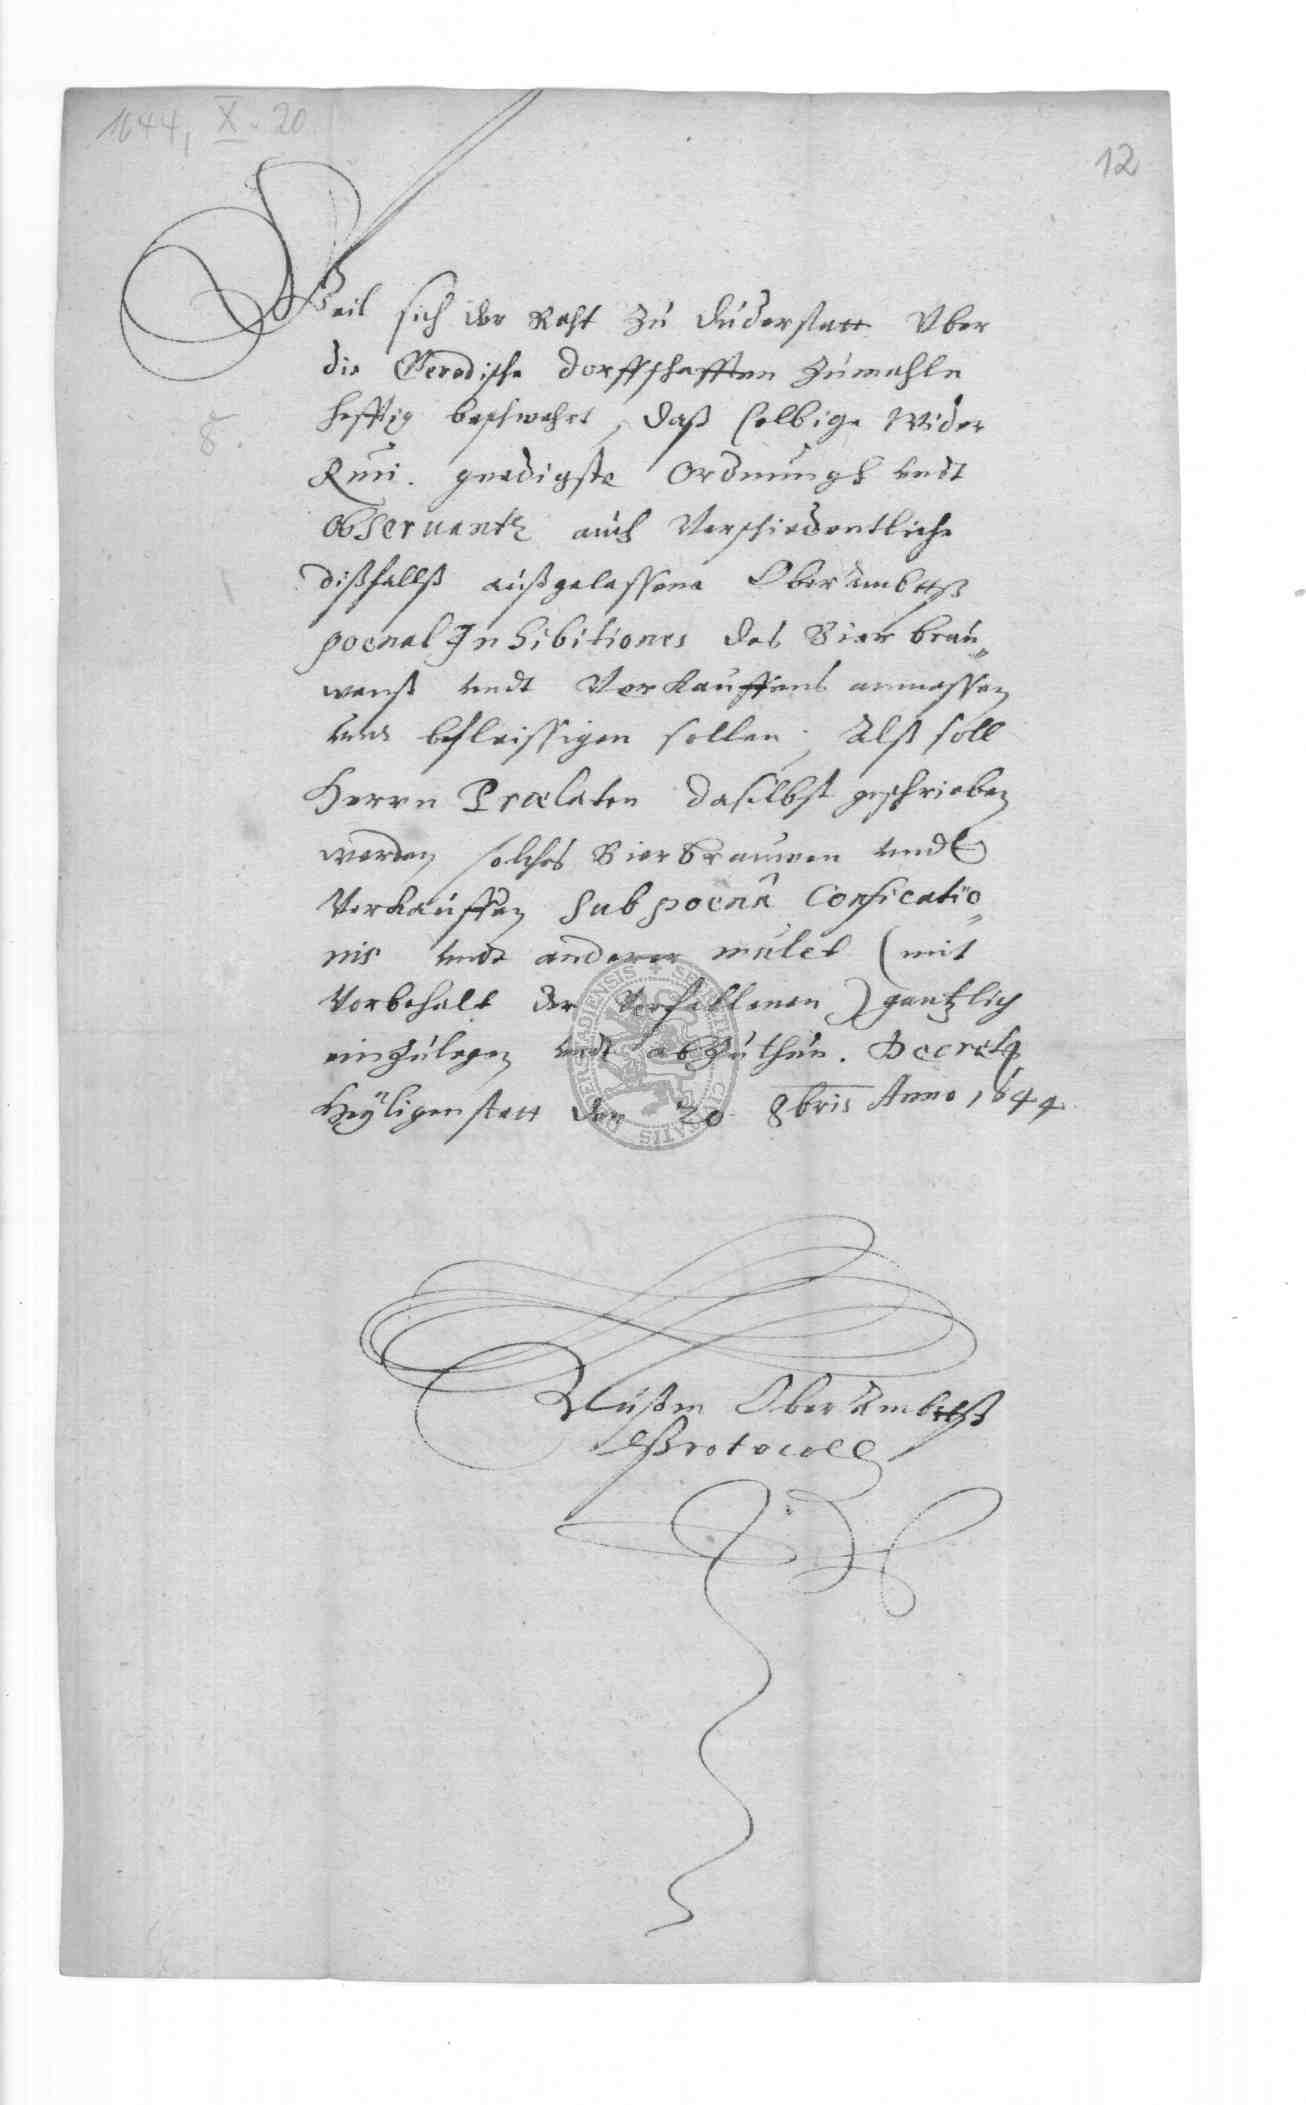 1644, X. 20
12
Weil sich der Raht zu Duderstatt Vber
die Gerodische Dorffschafften zumahln
hefftig beschwehrt, daß selbige Wider
8.
Rmi. gnedigste Ordnungh vndt
Obseruantz auch Verschiedentliche
dißfallß außgelassene Ober Ambtß
poenal Inhibitiones des Bier brau„
wenß vndt Verkauffens anmassen
vnd befleissigen sollen; Alß soll
Herrn Prælaten daselbst geschrieben
werden, solches Bier Brauwen vndt
Verkauffen sub poenâ Conficatio„
nis vndt anderer mulct (mit
Vorbehalt der Verfallenen) gantzlich
einzulegen vndt abzuthun. Decretum
Heyligenstatt den 20 8bris Anno 1644
SIGILLUM CIVITATIS DUDERSTADIENSIS
Ober Ambtß
Protocoll